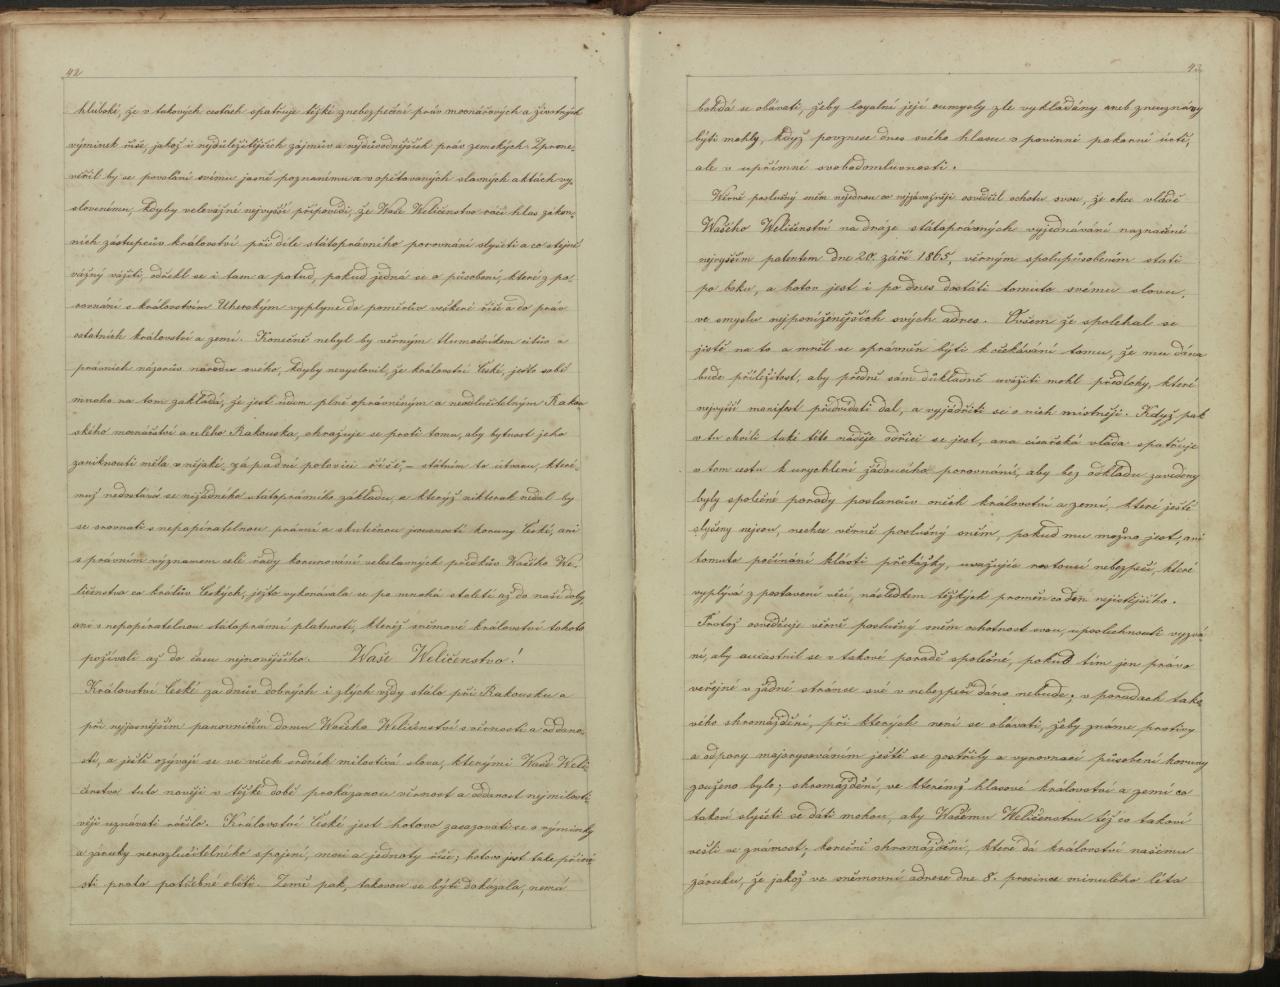 42
hluboké, že v takových cestách spatřuje těžké znebezpečení práv mocnářových a životných
výminek říše, jakož i nejdůležitějších zájmův a nejdůvodnějších práv zemských. Zprone-
věřil by se povolání svému jasně poznanému a v opětovaných slavných aktách vy-
slovenému, kdyby velevážné nejvyšší připovědi, že Vaše Veličenstvo ráčí hlas zákon-
ních zástupcův království při díle státoprávního porovnání slyšeti a co stejně
vážný vážiti, odřekl se i tam a potud, pokud jedná se o působení, které z po-
rovnání s královstvím Uherským vyplyne do poměrův veškeré říše a do práv
ostatních království a zemí. Konečně nebyl by věrným tlumočníkem citův a
právních názorův národu svého, kdyby nevyslovil, že království České, ješto sobě
mnoho na tom zakládá, že jest údem plně oprávněným a neodlučitelným Rakou-
ského mocnářství a celého Rakouska, ohražuje se proti tomu, aby bytnost jeho
zaniknouti měla v nějaké „západní polovici říše“, – státním to útvaru, které-
muž nedostává se nižádného státoprávního základu, a kterýž nikterak nedal by
se srovnati s nepopíratelnou právní a skutečnou jsoucností koruny České, ani
s právním významem celé řady korunování veleslavných předkův Vašeho Ve-
ličenstva co králův Českých, ježto vykonávala se po mnohá století až do naší doby,
ani s nepopíratelnou státoprávní platností, kteréž sněmové království tohoto
požívali až do času nejnovějšího. Vaše Veličenstvo!
Království České za dnův dobrých i zlých vždy stálo při Rakousku a
při nejjasnějším panovničím domu Vašeho Veličenství s věrností a oddano-
stí, a ještě ozývají se ve všech srdcích milostivá slova, kterými Vaše Veli-
čenstvo tuto nověji v těžké době prokázanou věrnost a oddanost nejmilosti-
věji uznávati ráčilo. Království České jest hotovo zasazovati se o výminky
a záruky nerozlučitelného spojení, moci a jednoty říše; hotovo jest také přiné-
sti proto potřebné oběti. Země pak, takovou se býti dokázala, nemá
43
bohdá se obávati, žeby loyalní její oumysly zle vykládány aneb zneuznány
býti mohly, když povznese dnes svého hlasu v povinné pokorné úctě,
ale v upřímné svobodomluvnosti.
Věrně poslušný sněm nejednou co nejzávažněji osvědčil ochotu svou, že chce vládě
Vašeho Veličenství na dráze státoprávných vyjednávání naznačené
nejvyšším patentem dne 20. září 1865, věrným spolupůsobením státi
po boku, a hotov jest i po dnes dostáti tomuto svému slovu,
ve smyslu nejponíženějších svých adres. Ovšem že spoléhal se
jistě na to a mněl se oprávněn býti k očekávání tomu, že mu dána
bude příležitost, aby předně sám důkladně uvážiti mohl předlohy, které
nejvyšší manifest předvídati dal, a vyjádřiti se o nich místněji. Když pak
v tu chvíli také této naděje odříci se jest, ana císařská vláda spatřuje
v tom cestu k urychlení žádoucího porovnání, aby bez odkladu zavedeny
byly společné porady poslancův oněch království a zemí, které ještě
slyšeny nejsou, nechce věrně poslušný sněm, pokud mu možno jest, ani
tomuto počínání klásti překážky, uvažujíc rostoucí nebezpečí, které
vyplývá z postavení věcí, následkem těžkých proměn co den nejistějšího.
Protož osvědčuje věrně poslušný sněm ochotnost svou, uposlechnouti vyzvá-
ní, aby aučastnil se v takové poradě společné, pokud tím jen právo
veřejné v žádné stránce své v nebezpečí dáno nebude; v poradách tako-
vého shromáždění, při kterých není se obávati, žeby známé protivy
a odpory majorysováním ještě se zostřily a vyrovnací působení koruny
zouženo bylo; shromáždění, ve kterémž hlasové království a zemí co
takoví slyšeti se dáti mohou, aby Vašemu Veličenstvu též co takoví
vešli ve známost; konečně shromáždění, které dá království našemu
záruku, že jakož ve sněmovní adrese dne 8. prosince minulého léta